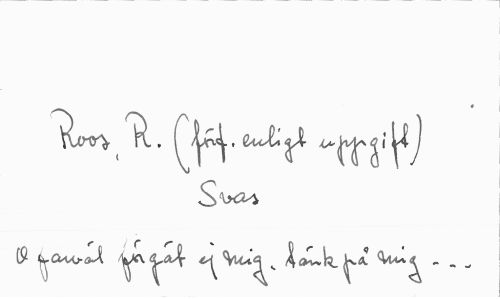 Roos, R. (förf. enligt uppgift)
Svas
O farväl förgät ej mig. tänk på mig - - -